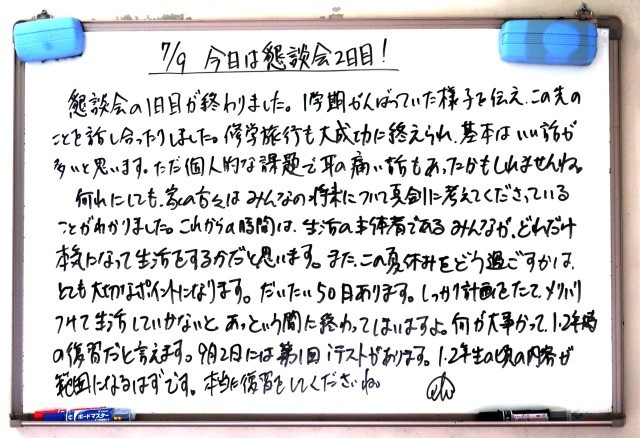 7/9 今日は懇談会2日目!
懇談会の1日目が終わりました。1学期がんばっていた様子を伝え、この先の
ことを話し合ったりしました。修学旅行も大成功に終えられ、基本はいい話が
多いと思います。ただ個人的な課題で耳の痛い話もあったかもしれませんね。
何れにしても、家の方々はみんなの将来について真剣に考えてくださっている
ことがわかりました。これからの時間は、生活の主体者であるみんなが、どれだけ
本気になって生活をするかだと思います。また、この夏休みをどう過ごすかは、
とても大切なポイントになります。だいたい50日あります。しっかり計画をたて、メリハリ
つけて生活していかないと、あっという間に終わってしまいますよ。何が大事かって、1・2年時
の復習だと言えます。9月2日には第1回iテストがあります。1・2年生の頃の内容が
範囲になるはずです。本当に復習をしてくださいね。
ボードマスター